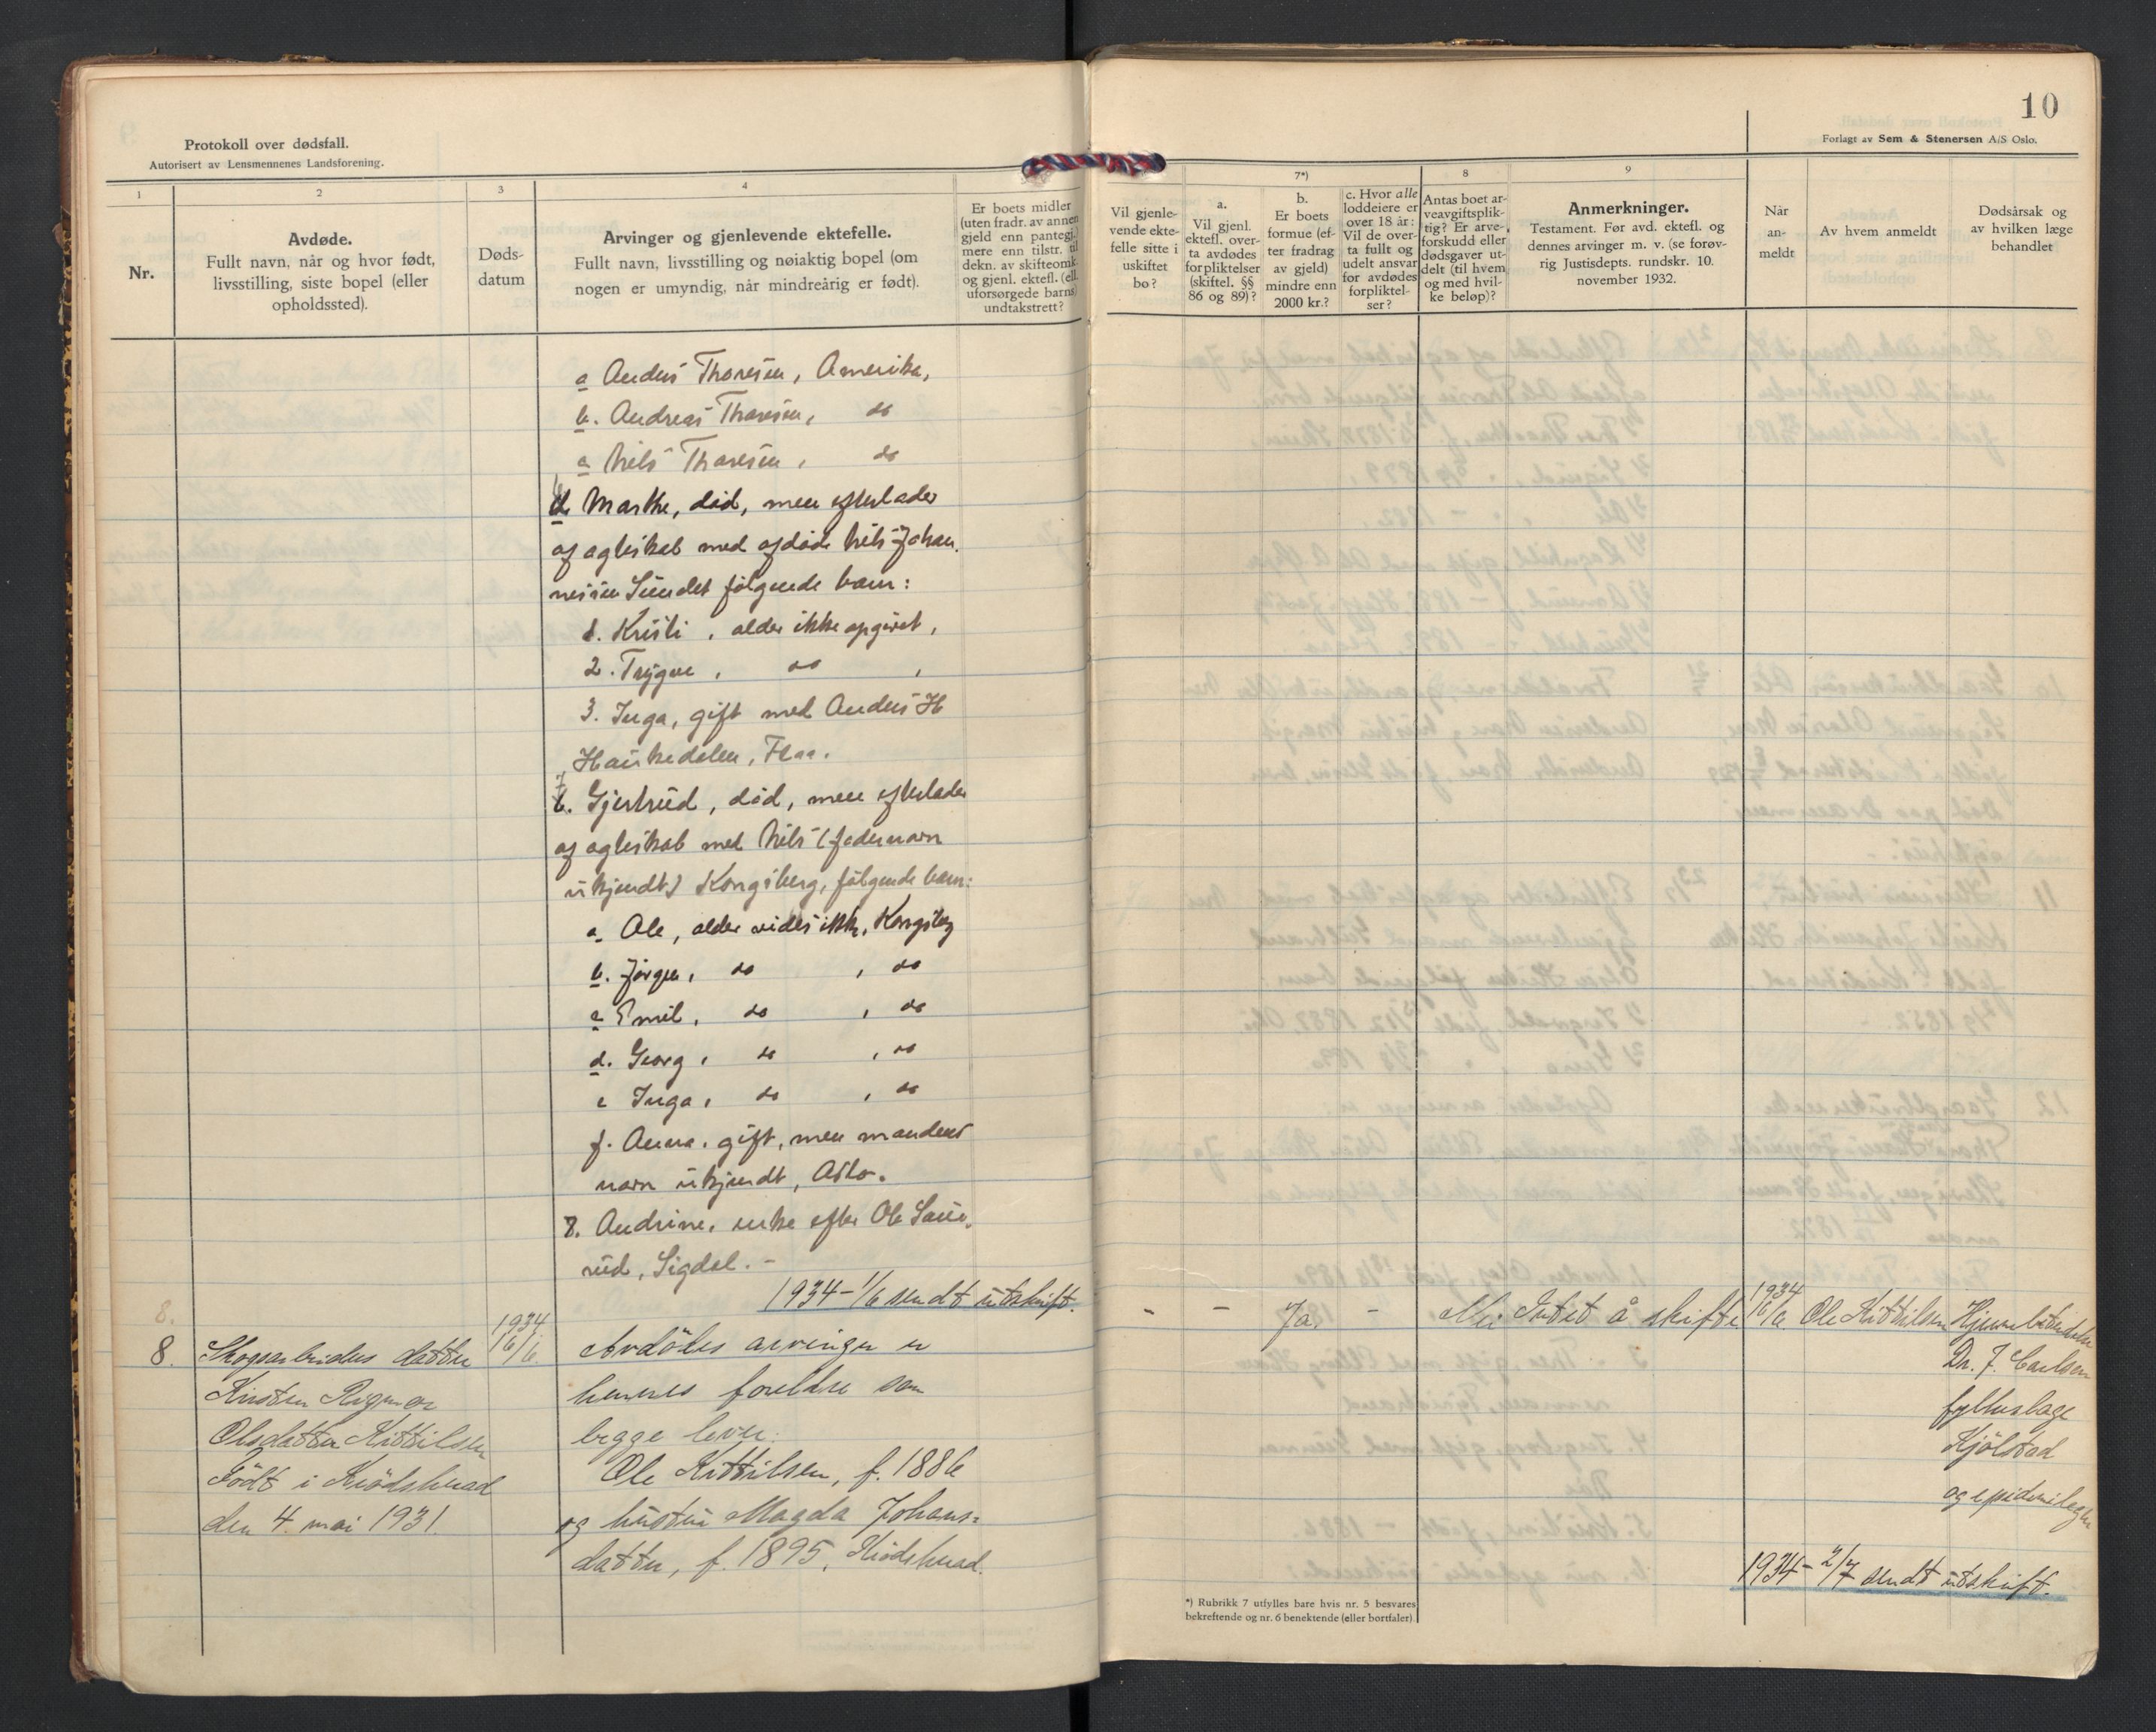 Protokoll over dødsfall.
Autorisert av Lensmennenes Landsforening.
1
2
3
4
Nr.
Avdøde.
Fullt navn, når og hvor født,
livsstilling, siste bopel (eller
opholdssted).
Døds-
datum
Arvinger og gjenlevende ektefelle.
Fullt navn, livsstilling og nøiaktig bopel (om
nogen er umyndig, når mindreårig er født).
Er boets midler
(uten fradr. av annen
gjeld enn pantegj.)
mere enn tilstr. til
dekn. av skifteomk.
og gjenl. ektefl. (ell.
uforsørgede barns)
undtakstrett?
a Anders Thoresen, Amerika,
b. Andreas Thoresen, do
c Nels Thoresen, do
d. Marthe, död, men efterlader
af ægteskab med afdöde Nils Johan-
nesen Sundet følgende barn:
1. Kristi, alder ikke opgivet,
2. Trygve, do,
3. Inga, gift med Anders H
Haukedalen, Flaa.
Gjertrud, död, men efterlader
af ægteskab med Nils (federnavn
ukjendt) Kongsberg, følgende barn:
a. Ole, alder vides ikke, Kongsberg
b. Jörgen, do, do
c Emil, do, do
d. Georg, do, do
e Inga, do, do
f. Anna, gift, men mandens
navn ukjendt, Oslo.
8. Andrine, enke efter Ole Saue-
rud, Sigdal. -
1934 - 1/6 sendt utskrift.
8.
8. Skogsarbeiders datter
Kirsten Rigmor
Olsdatter Kittilsen
Födt i Krödsherad
den 4. mai 1931.
1934
16/6
Avdödes arvinger er
hennes foreldre som
begge lever:
Ole Kittilsen, f. 1886
og hustru Magda Johans-
datter, f. 1895, Krödsherad.
10
Forlagt av Sem & Stenersen A/S Oslo.
7*)
8
9
Vil gjenle-
vende ekte-
felle sitte i
uskiftet
bo?
a.
Vil gjenl.
ektefl. over-
ta avdødes
forpliktelser
(skiftel. §§
86 og 89)?
b.
Er boets
formue (ef-
ter fradrag
av gjeld)
mindre enn
2000 kr.?
c. Hvor alle
loddeiere er
over 18 år:
Vil de over-
ta fullt og
udelt ansvar
for avdødes
forpliktel-
ser?
Antas boet ar-
veavgiftsplik-
tig? Er arve-
forskudd eller
dødsgaver ut-
delt (til hvem
og med hvil-
ke beløp)?
Anmerkninger.
Testament. Før avd. ektefl. og
dennes arvinger m. v. (se forøv-
rig Justisdepts. rundskr. 10.
november 1932.
Når
an-
meldt
Av hvem anmeldt
Dødsårsak og
av hvilken læge
behandlet
- - Ja. - Nei Intet å skifte 1934 Ole Kittilsen
Dr. J. Carlsen
fylkeslæge
Kjölstad
og epidemilægen
1934 - 2/7 sendt utskrift.
*) Rubrikk 7 utfylles bare hvis nr. 5 besvares
bekreftende og nr. 6 benektende (eller bortfaler)